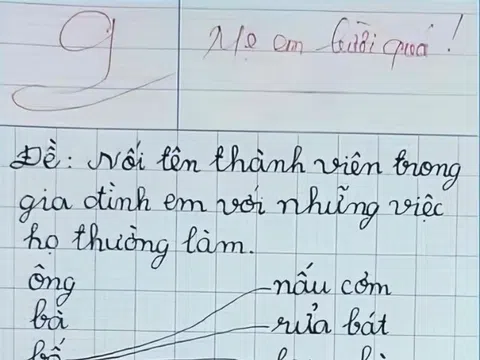 9
Mẹ em lười quá!
Đề: Nối tên thành viên trong
gia đình em với những việc
họ thường làm.
ông nấu cơm
bà rửa bát
bố